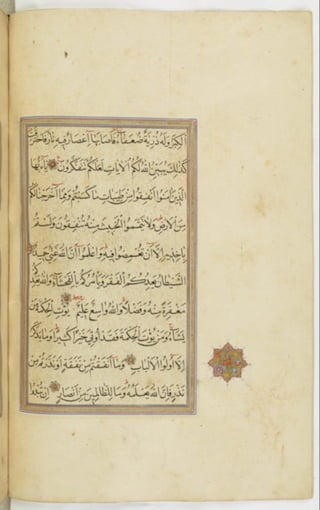 الْكِبَرُ وَلَهُ ذُرِّيَّةٌ ضُعَفَاءُ فَأَصَابَهَا إِعْصَارٌ فِيهِ نَارٌ فَاحْتَرَقَتْ
كَذَلِكَ يُبَيِّنُ اللَّهُ لَكُمُ الْآيَاتِ لَعَلَّكُمْ تَتَفَكَّرُونَ يَا أَيُّهَا
الَّذِينَ آمَنُوا أَنْفِقُوا مِنْ طَيِّبَاتِ مَا كَسَبْتُمْ وَمِمَّا أَخْرَجْنَا لَكُمْ
مِنَ الْأَرْضِ وَلَا تَيَمَّمُوا الْخَبِيثَ مِنْهُ تُنْفِقُونَ وَلَسْتُمْ
بِآخِذِيهِ إِلَّا أَنْ تُغْمِضُوا فِيهِ وَاعْلَمُوا أَنَّ اللَّهَ غَنِيٌّ حَمِيدٌ
الشَّيْطَانُ يَعِدُكُمُ الْفَقْرَ وَيَأْمُرُكُمْ بِالْفَحْشَاءِ وَاللَّهُ يَعِدُكُمْ
مَغْفِرَةً مِنْهُ وَفَضْلًا وَاللَّهُ وَاسِعٌ عَلِيمٌ يُؤْتِي الْحِكْمَةَ مَنْ
يَشَاءُ وَمَنْ يُؤْتَ الْحِكْمَةَ فَقَدْ أُوتِيَ خَيْرًا كَثِيرًا وَمَا يَذَّكَّرُ
إِلَّا أُولُوا الْأَلْبَابِ وَمَا أَنْفَقْتُمْ مِنْ نَفَقَةٍ أَوْ نَذَرْتُمْ مِنْ
نَذْرٍ فَإِنَّ اللَّهَ يَعْلَمُهُ وَمَا لِلظَّالِمِينَ مِنْ أَنْصَارٍ إِنْ تُبْدُوا